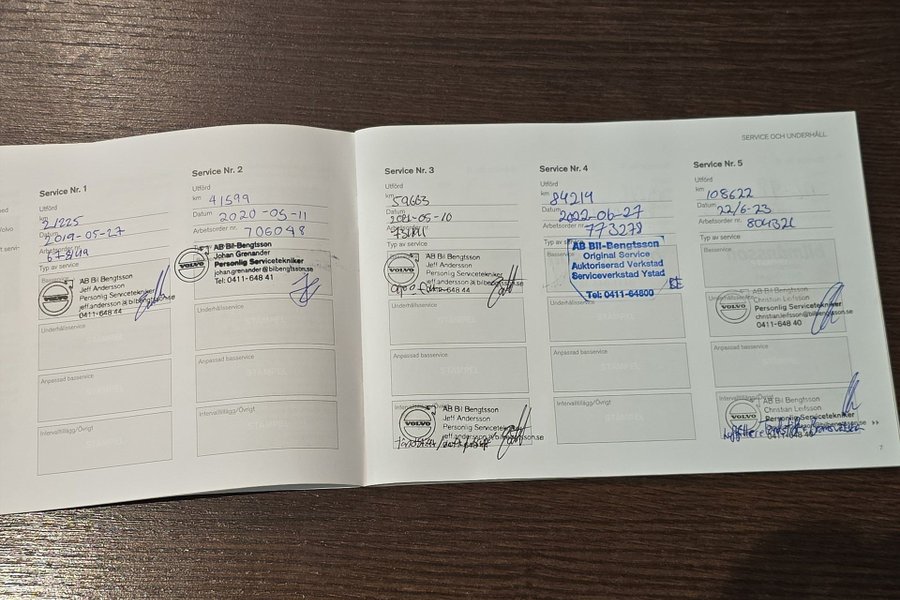 SERVICE OCH UNDERHÅLL
Service Nr. 1
Utförd
km 21225
Datum 2019-05-27
Arbetsorder nr.
Typ av service
Basservice
VOLVO
AB Bil Bengtsson
Jeff Andersson
Personlig Servicetekniker
jeff.andersson@bilbengtsson.se
0411-648 44
Underhållsservice
Anpassad basservice
Intervalltillägg/Övrigt
Service Nr. 2
Utförd
km 41599
Datum 2020-05-11
Arbetsorder nr. 706048
Typ av service
VOLVO
AB Bil-Bengtsson
Johan Grenander
Personlig Servicetekniker
johan.grenander@bilbengtsson.se
Tel: 0411-648 41
Underhållsservice
Anpassad basservice
STÄMPEL
Intervalltillägg/Övrigt
Service Nr. 3
Utförd
km 59663
Datum 2021-05-10
Arbetsorder nr.
Typ av service
VOLVO
AB Bil Bengtsson
Jeff Andersson
Personlig Servicetekniker
jeff.andersson@bilbengtsson.se
0411-648 44
Underhållsservice
STÄMPEL
Anpassad basservice
STÄMPEL
Intervalltillägg/Övrigt
VOLVO
AB Bil Bengtsson
Jeff Andersson
Personlig Servicetekniker
jeff.andersson@bilbengtsson.se
0411-648 44
Service Nr. 4
Utförd
km 84219
Datum 2022-06-27
Arbetsorder nr. 773278
Typ av service
Basservice
AB Bil-Bengtsson
Original Service
Auktoriserad Verkstad
Serviceverkstad Ystad
Tel: 0411-64800
Underhållsservice
STÄMPEL
Anpassad basservice
Intervalltillägg/Övrigt
Service Nr. 5
Utförd
km 108622
Datum 22/6-23
Arbetsorder nr. 804321
Typ av service
Basservice
Underhållsservice
VOLVO
AB Bil Bengtsson
Christian Leifsson
Personlig Servicetekniker
christian.leifsson@bilbengtsson.se
0411-648 40
Anpassad basservice
STÄMPEL
Intervalltillägg/Övrigt
VOLVO
AB Bil Bengtsson
Christian Leifsson
Personlig Servicetekniker
0411-648 40
7